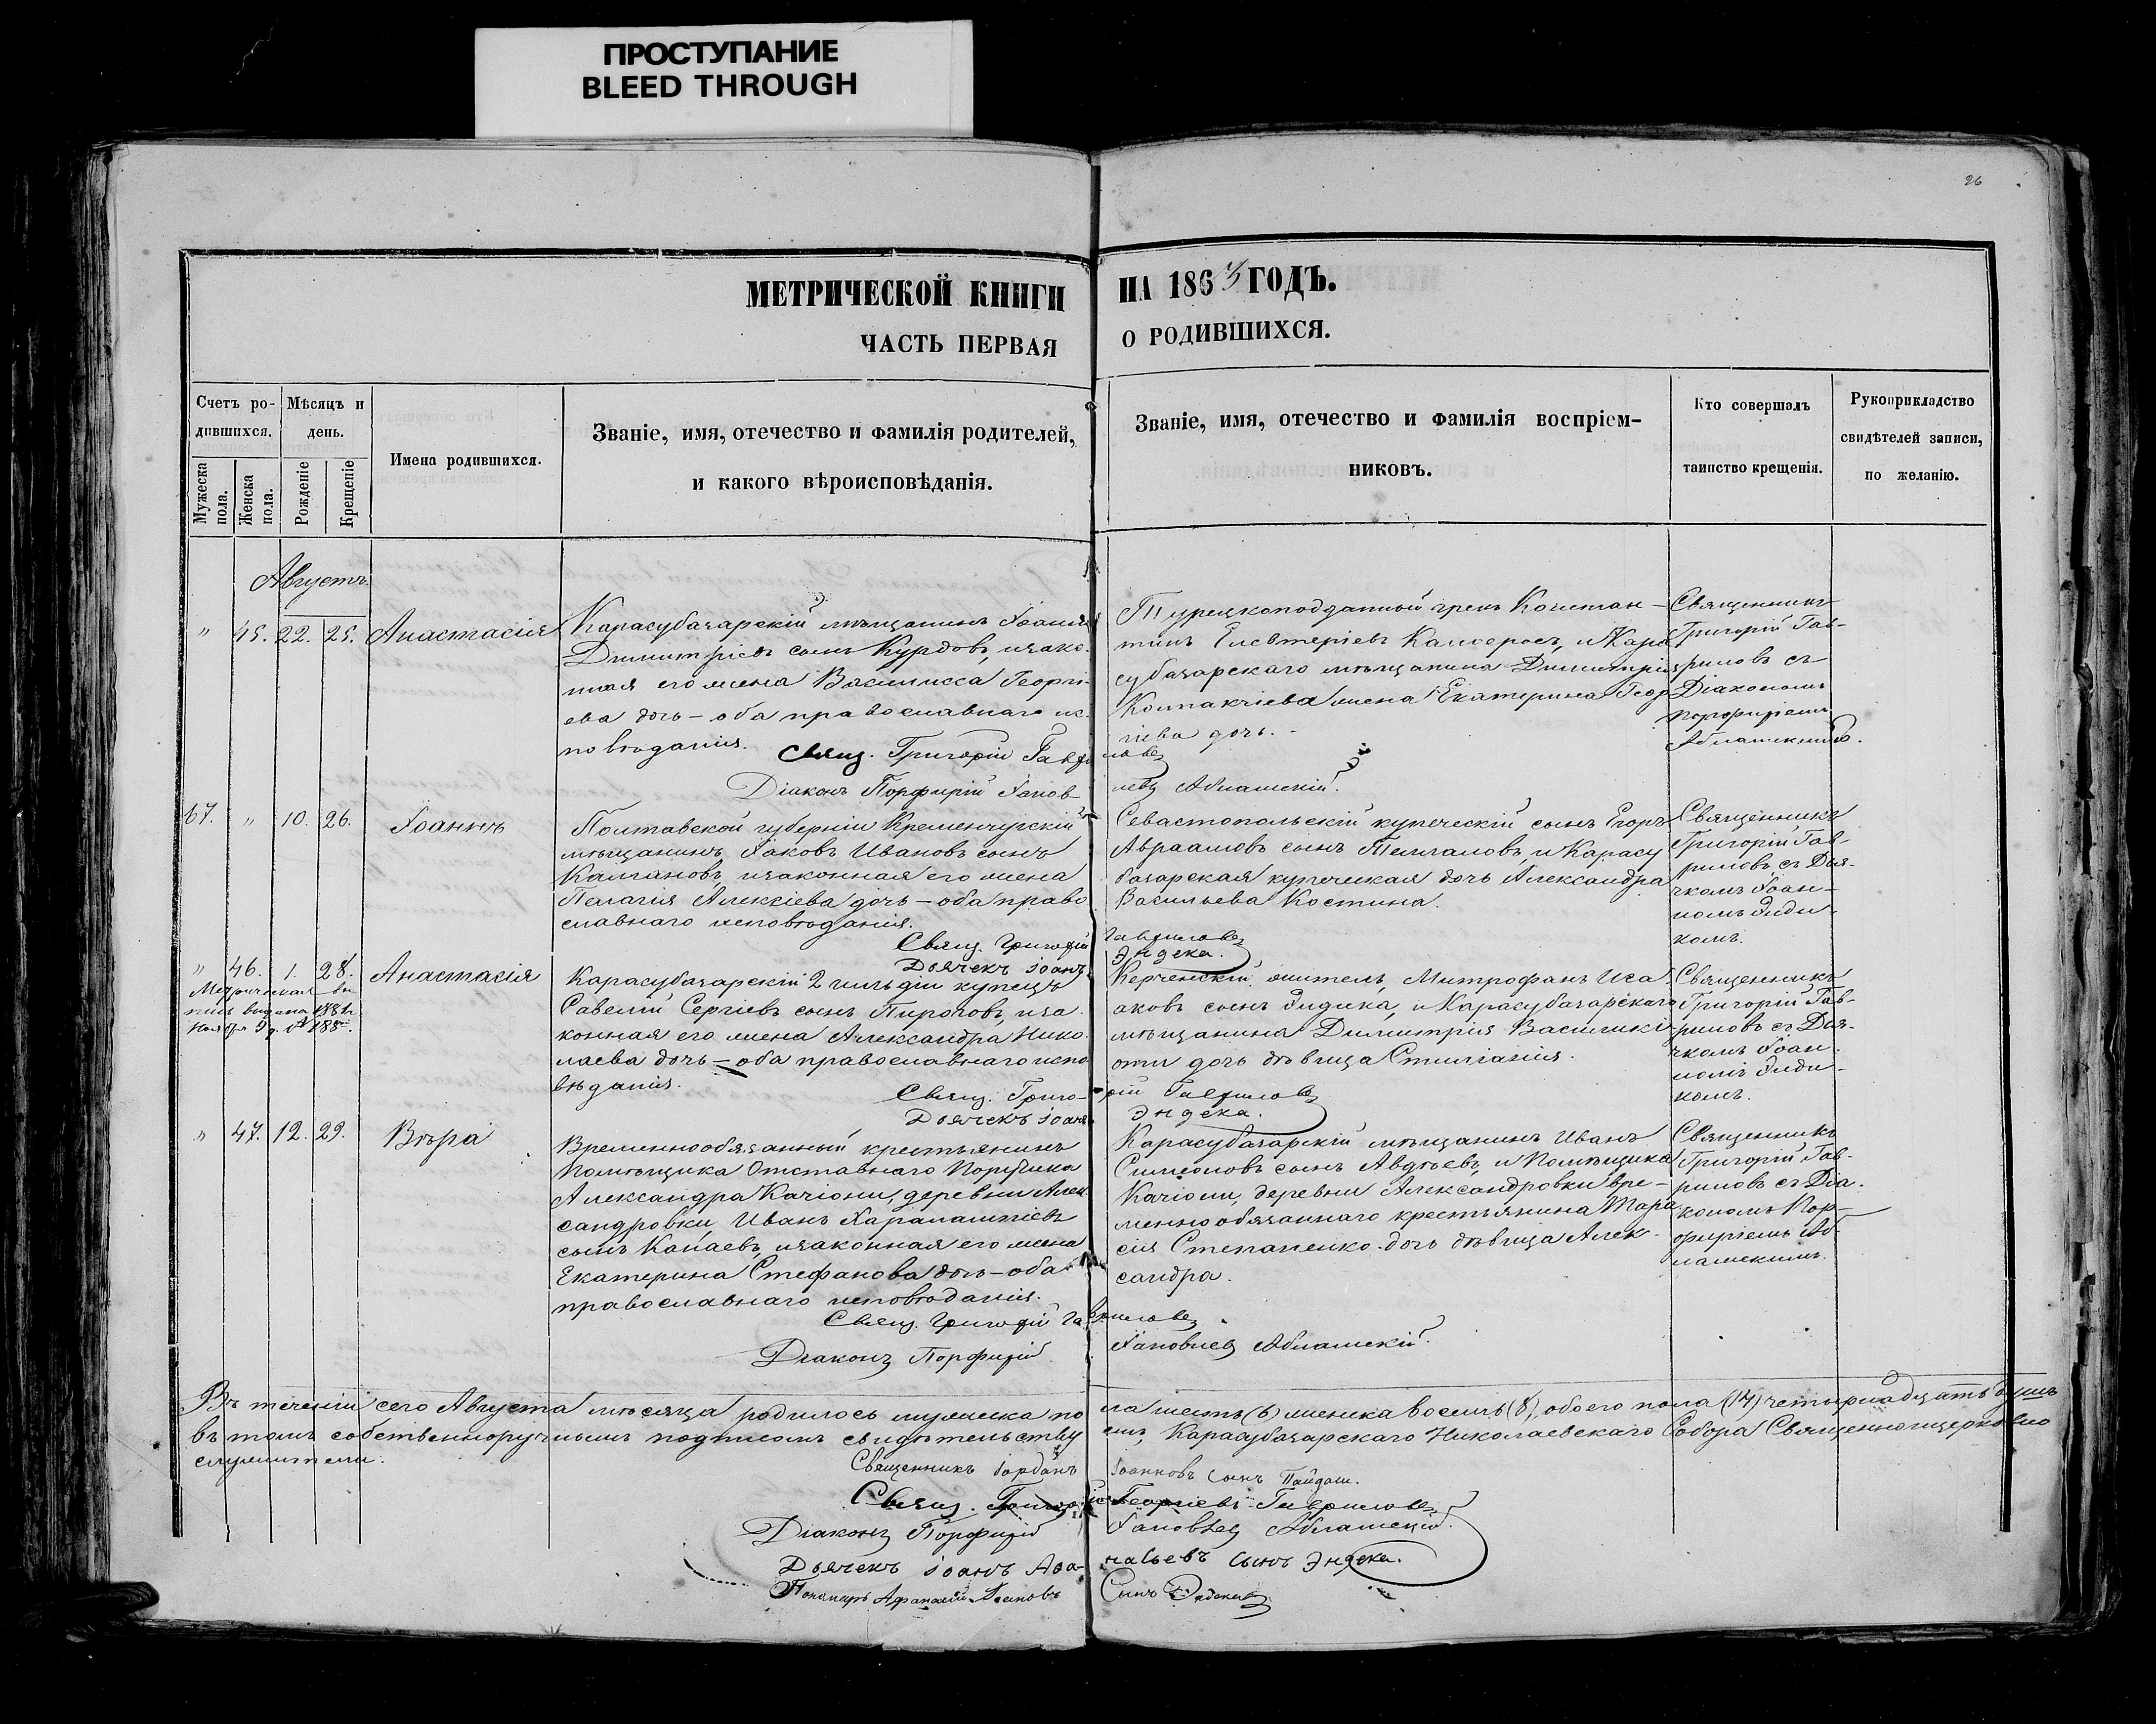 ПРОСТУПАНИЕ
BLEED THROUGH
26
МЕТРИЧЕСКОЙ КНИГИ НА 1863 ГОДЪ.
ЧАСТЬ ПЕРВАЯ О РОДИВШИХСЯ.
Счетъ ро-
дившихся.
Мужеска пола.
Женска пола.
Мѣсяцъ и
день.
Рожденіе
Крещеніе
Имена родившихся.
Званіе, имя, отечество и фамилія родителей,
и какого вѣроисповѣданія.
Званіе, имя, отечество и фамилія воспріем-
никовъ.
Кто совершалъ
таинство крещенія.
Рукоприкладство
свидѣтелей записи,
по желанію.
Августъ.
" 45. 22. 25. Анастасія
Карасубазарскій мѣщанинъ Іоаннъ
Димитріевъ сынъ Курдовъ, изако-
нная его жена Василисса Георгі-
ева дочь – оба православнаго ис-
повѣданія.
Турецкоподданный грекъ Констан-
тинъ Елевтеріевъ Калферосъ, и Кара
субазарскаго мѣщанина Димитрія
Колпакчіева жена Екатерина Геор
гіева дочь.
Священникъ
Григорій Гав-
риловъ съ
Діакономъ
Порфиріемъ
Аблашскимъ.
Свящ. Григорій Гавриловъ
Діаконъ Порфирій Яковлевъ Аблашскій.
67. " 10. 26. Іоаннъ
Полтавской губерніи Кременчугскій
мѣщанинъ Іаковъ Ивановъ сынъ
Калгановъ, изаконная его жена
Пелагія Алексіева дочь – оба право
славнаго исповѣданія.
Севастопольскій купеческій сынъ Егоръ
Авраамовъ сынъ Темгаловъ, и Карасу
базарская купеческая дочь Александра
Васильева Костина.
Священникъ
Григорій Гав-
риловъ, съ Дья-
чкомъ Іоан-
номъ Энди-
комъ.
Свящ. Григорій Гавриловъ
Дьячекъ Іоаннъ Эндека.
" 46. 1. 28. Анастасія
Метрическая вы
пись выдана 1881 г.
Ноября 9 д.
Карасубазарскій 2 гильдіи купецъ
Савелій Сергіевъ сынъ Пироговъ, иза
конная его жена Александра Нико-
лаева дочь – оба православнаго испо
вѣданія.
Керченскій житель, Митрофанъ Иса
аковъ сынъ Эндика, и Карасубазарскаго
мѣщанина Димитрія Василикі-
оти дочь дѣвица Стиліанія.
Священникъ
Григорій Гав-
риловъ съ Дья-
чкомъ Іоан-
номъ Энди-
комъ.
Свящ. Григорій Гавриловъ
Дьячекъ Іоаннъ Эндека.
" 47. 12. 29. Вѣра
Временнообязанный крестьянинъ
Помѣщика Отставнаго Поручика
Александра Качіони, деревни Алек
сандровки, Иванъ Харалампіевъ
сынъ Капаевъ, изаконная его жена
Екатерина Стефанова дочь – оба
православнаго исповѣданія.
Карасубазарскій мѣщанинъ Иванъ
Симеоновъ сынъ Авдѣевъ, и Помѣщика
Качіони, деревни Александровки вре-
менно обязаннаго крестьянина Тара
сія Степаненко дочь дѣвица Алек-
сандра.
Священникъ
Григорій Гав-
риловъ съ Діа-
кономъ Пор-
фиріемъ Аб-
лашскимъ.
Свящ. Григорій Гавриловъ
Діаконъ Порфирій Яковлевъ Аблашскій.
Въ теченіи сего Августа мѣсяца родилось мужеска пола шесть (6) женска восемь (8), обоего пола (14) четырнадцать душъ
въ томъ собственноручнымъ подписомъ свидѣтельствуемъ, Карасубазарскаго Николаевскаго Собора Священноцерковно
служители.
Священникъ Іорданъ Іоанновъ сынъ Пайдаш.
Свящ. Григорій Георгіевъ Гавриловъ
Діаконъ Порфирій Яковлевъ Аблашскій.
Дьячекъ Іоаннъ Афанасьевъ сынъ Эндека.
Пономарь Афанасій Іоанновъ Сынъ Эндека